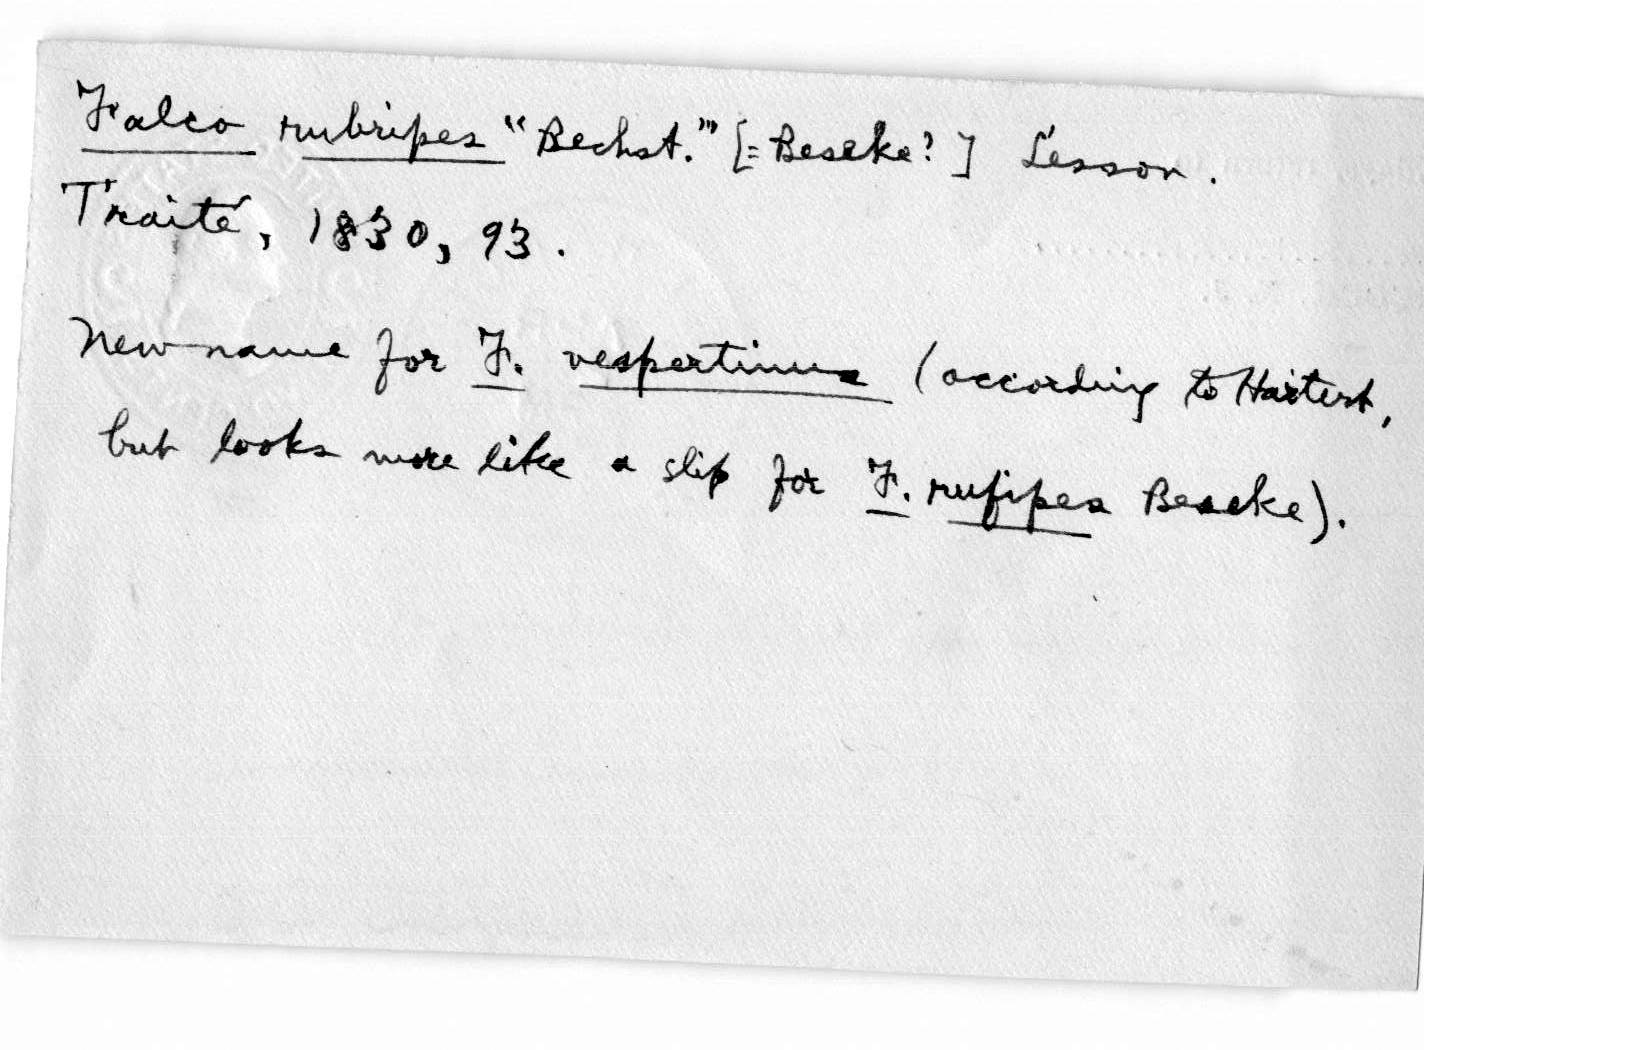 Falco rubripes "Bechst." [= Beseke?] Lesson.
Traité, 1830, 93.
New name for F. vespertinus (according to Hartert,
but looks more like a slip for F. rufipes Beseke).